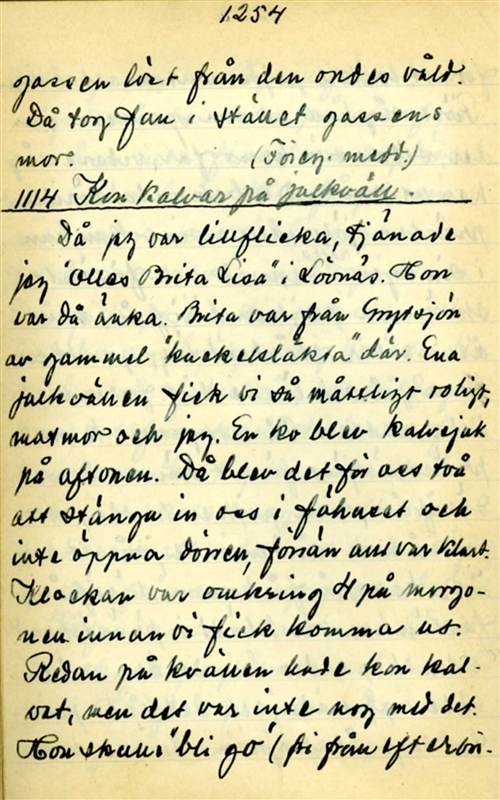 1254
gassen löst från den ondes våld.
Då tog fan i stället gassens
mor. (Föreg. medd.)
1114 Kon kalvar på julkväll.
Då jag var lillflicka, tjänade
jag "Olles Brita Lisa" i Lövnäs. Hon
var då änka. Brita var från Grytsjön
av gammel "kuckelsläkta" där. Ena
julkvällen fick vi så måttligt roligt,
matmor och jag. En ko blev kalvsjuk
på aftonen. Då blev det för oss två
att stänga in oss i fähuset och
inte öppna dörren, förrän allt var klart.
Klockan var omkring 4 på morgo-
nen innan vi fick komma ut.
Redan på kvällen hade kon kal-
vat, men det var inte nog med det.
Hon skulle "bli go" (fri från efterbör-